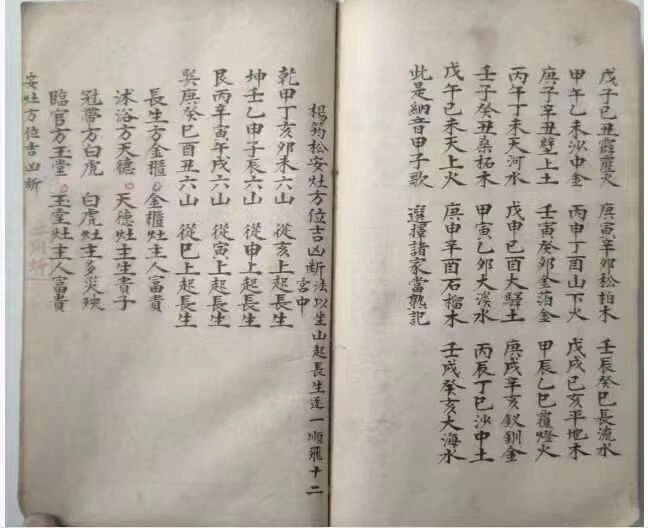 戊子己丑霹靂火 庚寅辛卯松柏木 壬辰癸巳長流水
甲午乙未沙中金 丙申丁酉山下火 戊戌己亥平地木
庚子辛丑壁上土 壬寅癸卯金箔金 甲辰乙巳覆燈火
丙午丁未天河水 戊申己酉大驛土 庚戌辛亥釵釧金
壬子癸丑桑柘木 甲寅乙卯大溪水 丙辰丁巳沙中土
戊午己未天上火 庚申辛酉石榴木 壬戌癸亥大海水
此是納音甲子歌 選擇諸家當熟記
楊筠松安灶方位吉凶斷法以坐山起長生逐一順飛十二
宮中
乾甲丁亥卯未六山 從亥上起長生
坤壬乙申子辰六山 從申上起長生
艮丙辛寅午戌六山 從寅上起長生
巽庚癸巳酉丑六山 從巳上起長生
長生方金櫃。金櫃灶主人富貴
沐浴方天德。天德灶主生貴子
冠帶方白虎 白虎灶主多災殃
臨官方玉堂。玉堂灶主人富貴
安灶方位吉凶斷